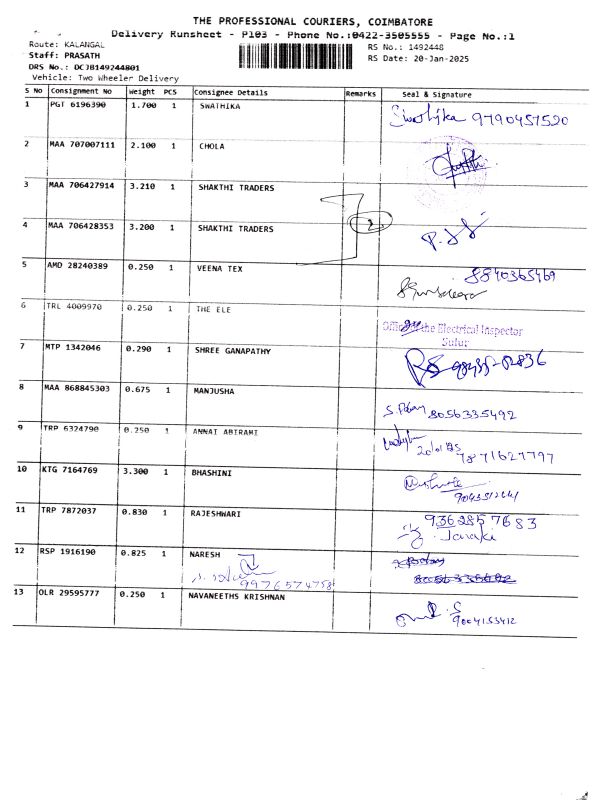 THE PROFESSIONAL COURIERS, COIMBATORE
Delivery Runsheet - P103 - Phone No.:0422-3505555 - Page No.:1
Route: KALANGAL
RS No.: 1492448
Staff: PRASATH
RS Date: 20-Jan-2025
DRS No.: DCJB149244801
Vehicle: Two Wheeler Delivery
S No Consignment No Weight PCS Consignee Details Remarks Seal & Signature
1 PGT 6196390 1.700 1 SWATHIKA Swathika 9790457520
2 MAA 707007111 2.100 1 CHOLA
3 MAA 706427914 3.210 1 SHAKTHI TRADERS
2
4 MAA 706428353 3.200 1 SHAKTHI TRADERS
5 AMD 28240389 0.250 1 VEENA TEX 8840365469
6 TRL 4009970 0.250 1 THE ELE
the Electrical Inspector
Sulur
7 MTP 1342046 0.290 1 SHREE GANAPATHY
8 MAA 868845303 0.675 1 MANJUSHA 8056335492
9 TRP 6324790 0.250 1 ANNAI ABIRAMI 20/01/25
7871627797
10 KTG 7164769 3.300 1 BHASHINI
11 TRP 7872037 0.830 1 RAJESHWARI 9362857683
Janaki
12 RSP 1916190 0.825 1 NARESH
9976574758
13 OLR 29595777 0.250 1 NAVANEETHS KRISHNAN
9004153412